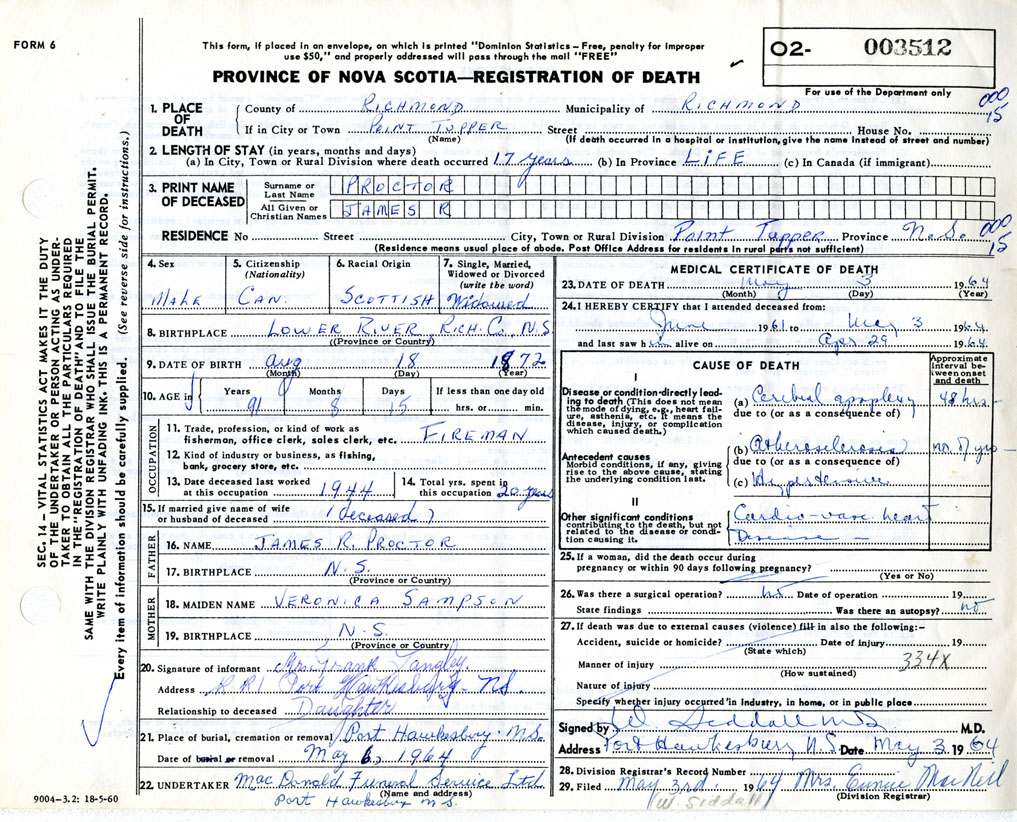 FORM 6
This form, if placed in an envelope, on which is printed "Dominion Statistics – Free, penalty for improper
use $50," and properly addressed will pass through the mail "FREE"
O2- 003512
For use of the Department only
PROVINCE OF NOVA SCOTIA—REGISTRATION OF DEATH
000
15
1. PLACE OF DEATH
County of RICHMOND Municipality of RICHMOND
If in City or Town POINT TUPPER Street House No.
(Name) (If death occurred in a hospital or institution, give the name instead of street and number)
2. LENGTH OF STAY (in years, months and days)
(a) In City, Town or Rural Division where death occurred 17 years (b) In Province LIFE (c) In Canada (if immigrant)
3. PRINT NAME OF DECEASED
Surname or Last Name PROCTOR
All Given or Christian Names JAMES R
RESIDENCE No Street City, Town or Rural Division Point Tupper Province N.S.
000
15
(Residence means usual place of abode. Post Office Address for residents in rural parts not sufficient)
4. Sex
Male
5. Citizenship
(Nationality)
CAN.
6. Racial Origin
SCOTTISH
7. Single, Married,
Widowed or Divorced
(write the word)
Widowed
8. BIRTHPLACE LOWER RIVER RICH. C. N.S.
(Province or Country)
9. DATE OF BIRTH Aug 18 1872
(Month) (Day) (Year)
10. AGE in
Years Months Days If less than one day old
91 8 15 hrs. or min.
OCCUPATION
11. Trade, profession, or kind of work as
fisherman, office clerk, sales clerk, etc. FIREMAN
12. Kind of industry or business, as fishing,
bank, grocery store, etc.
13. Date deceased last worked
at this occupation 1944
14. Total yrs. spent in
this occupation 20 years
15. If married give name of wife
or husband of deceased (deceased)
FATHER
16. NAME JAMES R. PROCTOR
17. BIRTHPLACE N.S.
(Province or Country)
MOTHER
18. MAIDEN NAME VERONICA SAMPSON
19. BIRTHPLACE N.S.
(Province or Country)
20. Signature of informant Mrs. Frank Langley
Address R.R.1 Port Hawkesbury N.S.
Relationship to deceased Daughter
21. Place of burial, cremation or removal Port Hawkesbury N.S.
Date of burial or removal May 6, 1964
22. UNDERTAKER MacDonald Funeral Service Ltd.
(Name and address)
Port Hawkesbury N.S.
9004-3.2: 18-5-60
MEDICAL CERTIFICATE OF DEATH
23. DATE OF DEATH May 3 1964
(Month) (Day) (Year)
24. I HEREBY CERTIFY that I attended deceased from:
June 1961 to May 3 1964
and last saw him alive on Apr 29 1964
CAUSE OF DEATH
Approximate
interval be-
tween onset
and death
I
Disease or condition directly lead-
ing to death (This does not mean
the mode of dying, e.g., heart fail-
ure, asthenia, etc. It means the
disease, injury, or complication
which caused death.)
(a) Cerebral apoplexy 48 hrs
due to (or as a consequence of)
Antecedent causes
Morbid conditions, if any, giving
rise to the above cause, stating
the underlying condition last.
(b) Atherosclerosis no. of yrs
due to (or as a consequence of)
(c) Hypertensive
II
Other significant conditions
contributing to the death, but not
related to the disease or condi-
tion causing it.
Cardio-vasc heart
Disease
25. If a woman, did the death occur during
pregnancy or within 90 days following pregnancy?
(Yes or No)
26. Was there a surgical operation? no Date of operation 19
State findings Was there an autopsy? no
27. If death was due to external causes (violence) fill in also the following:-
Accident, suicide or homicide? Date of injury 19
(State which)
334X
Manner of injury
(How sustained)
Nature of injury
Specify whether injury occurred in industry, in home, or in public place
Signed by W Siddall MD M.D.
Address Port Hawkesbury N.S. Date May 3 1964
28. Division Registrar's Record Number
29. Filed May 3rd. 1964 Mrs. Eunice MacNeil
(Division Registrar)
W. Siddall
SEC. 14 – VITAL STATISTICS ACT MAKES IT THE DUTY
OF THE UNDERTAKER OR PERSON ACTING AS UNDER-
TAKER TO OBTAIN ALL THE PARTICULARS REQUIRED
IN THE "REGISTRATION OF DEATH" AND TO FILE THE
SAME WITH THE DIVISION REGISTRAR WHO SHALL ISSUE THE BURIAL PERMIT.
WRITE PLAINLY WITH UNFADING INK. THIS IS A PERMANENT RECORD.
Every item of information should be carefully supplied. (See reverse side for instructions.)